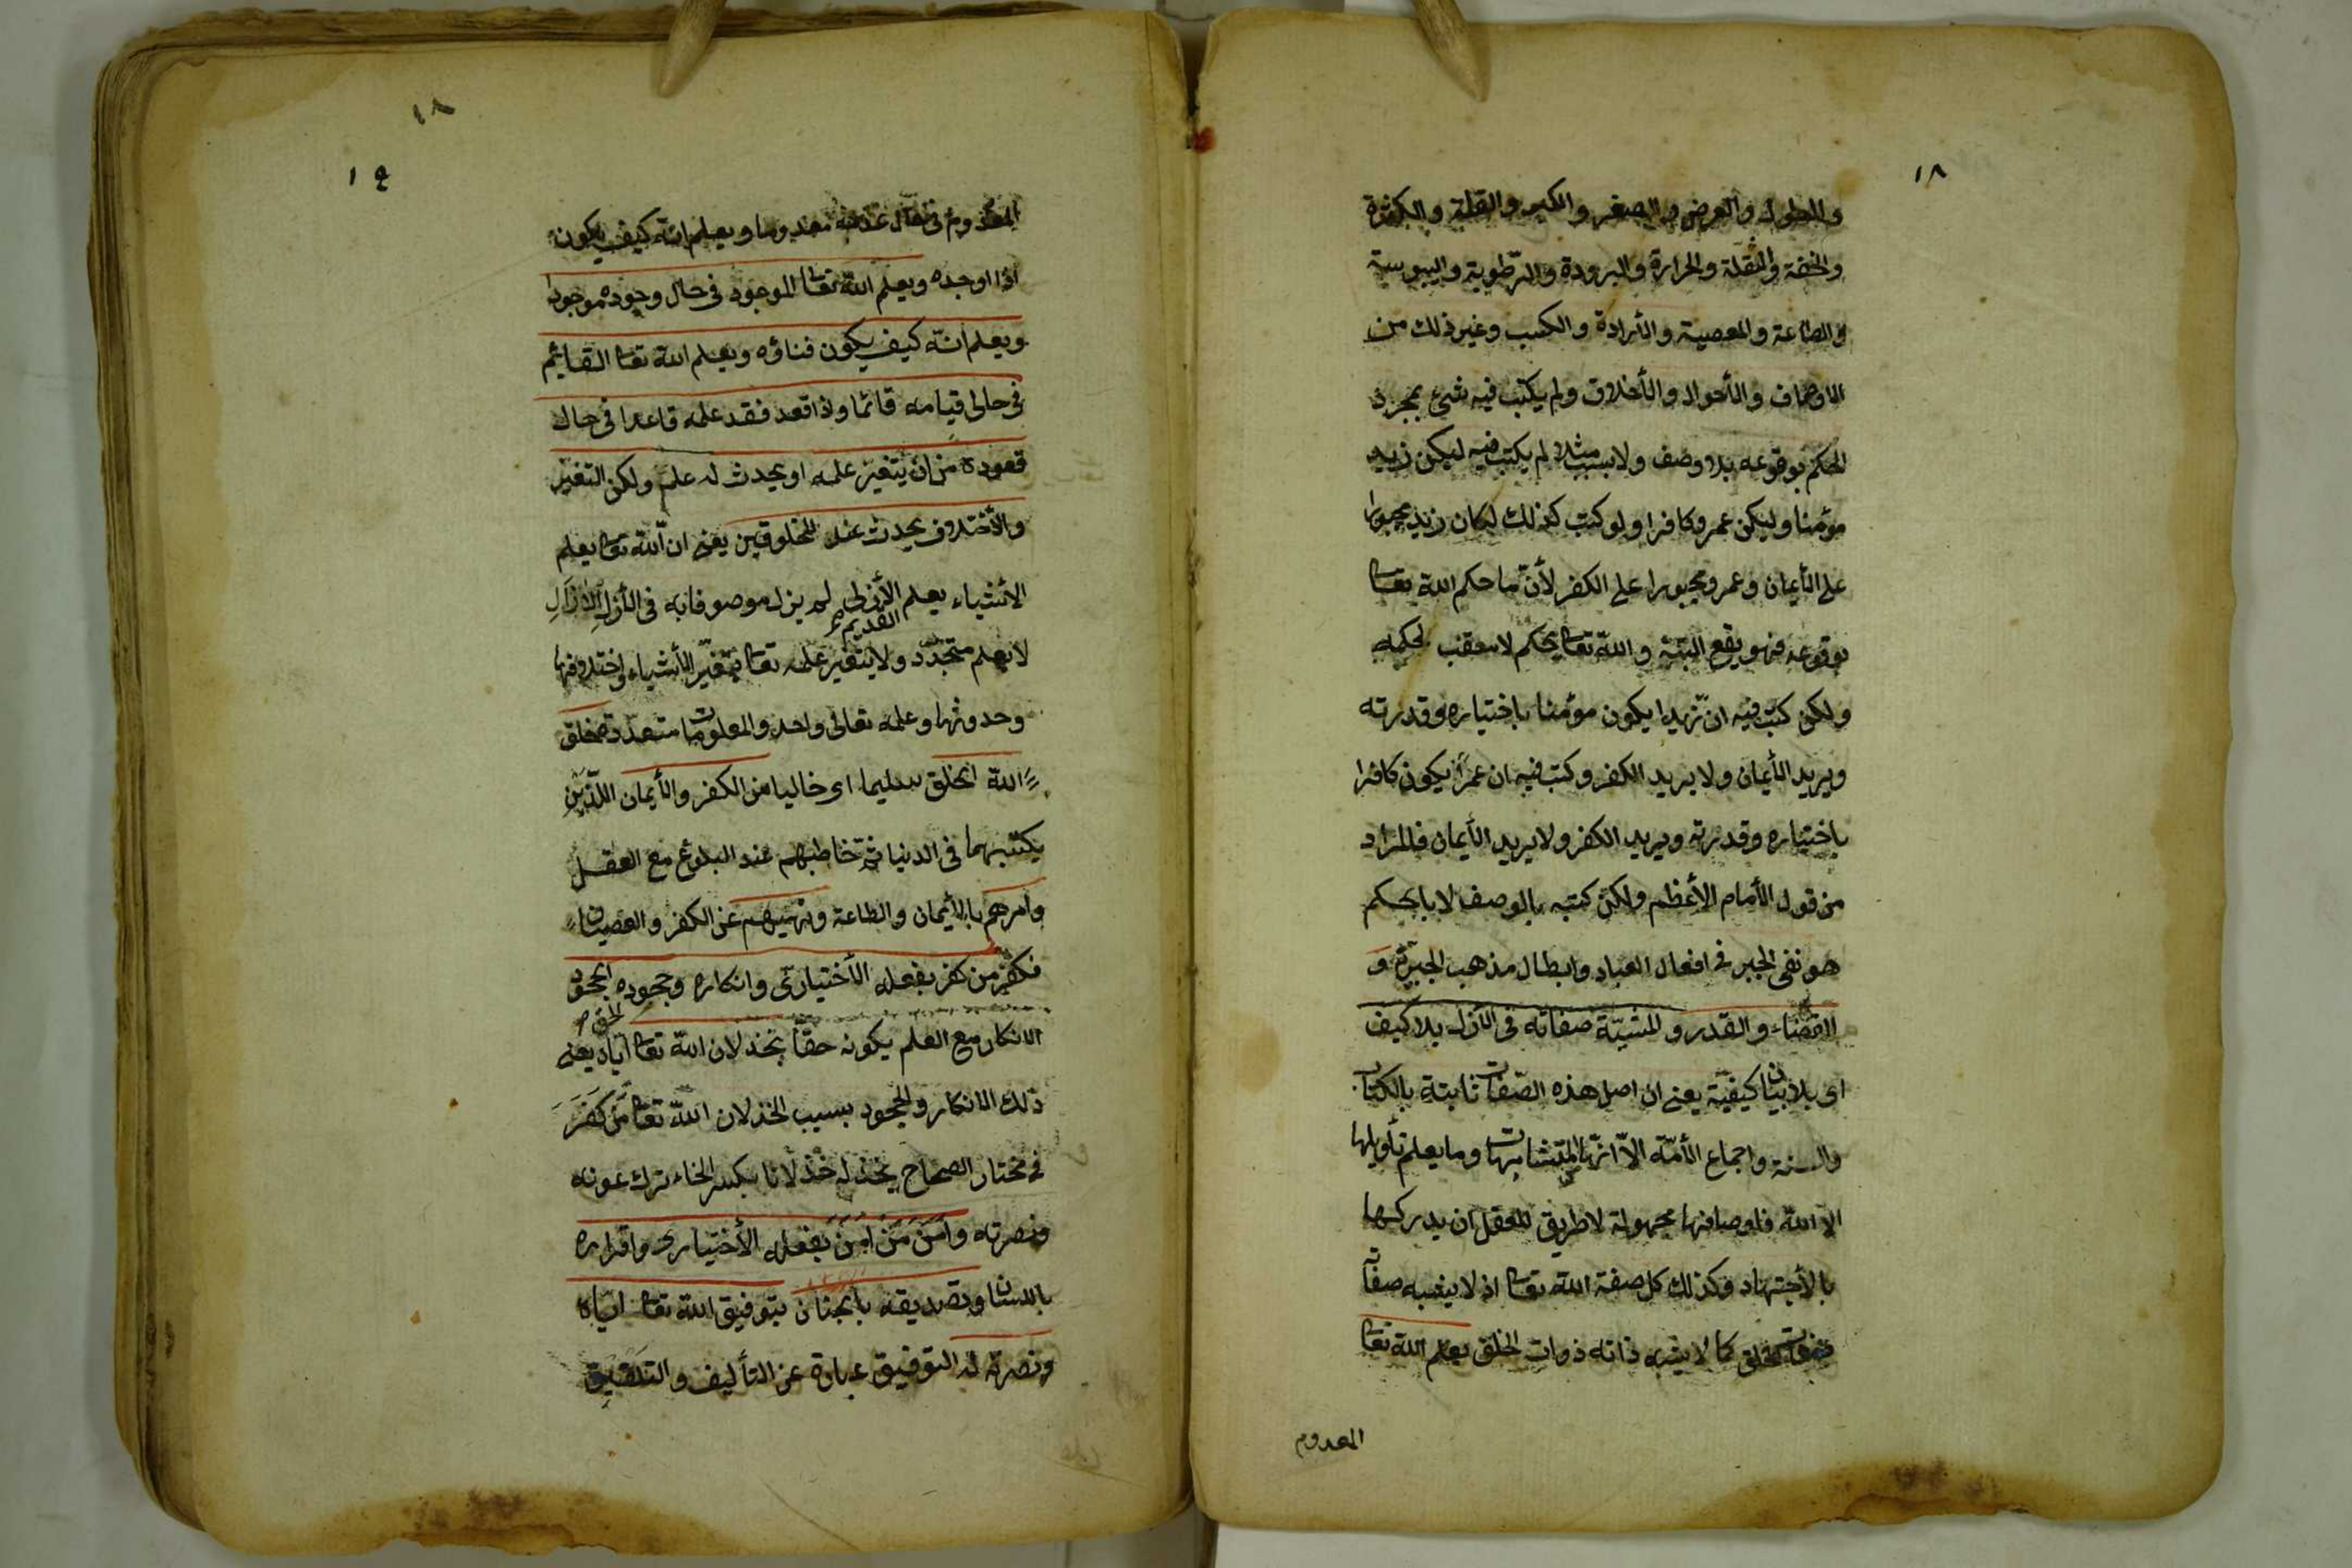 ١٨
والطول والعرض والصغر والكبر والقلة والكثرة
والخفة والثقلة والحرارة والبرودة والرطوبة واليبوسة
والطاعة والمعصية والأرادة والكسب وغير ذلك من
الاوصاف والأحوال والأخلاق ولم يكتب فيه شئ بمجرد
الحكم بوقوعه بلا وصف ولا سبب مثلا لم يكتب فيه ليكن زيد
مؤمنا وليكن عمرو كافرا ولو كتب كذلك لكان زيد مجبورا
على الأيمان وعمرو مجبورا على الكفر لأنّ ما حكم الله تعا
بوقوعه فهو يقع البتة والله تعا يحكم لا معقب لحكمه
ولكن كتب فيه انّ زيدا يكون مؤمنا باختياره وقدرته
ويريد الأيمان ولا يريد الكفر وكتب فيه ان عمرا يكون كافرا
باختياره وقدرته ويريد الكفر ولا يريد الأيمان فالمراد
من قول الأمام الأعظم ولكن كتبه بالوصف لا بالحكم
هو نفى الجبر فى افعال العباد وابطال مذهب الجبرية و
القضاء والقدر والمشيّة صفاته فى الأزل بلا كيف
اى بلا بيان كيفيّة يعنى ان اصل هذه الصّفات ثابتة بالكتاب
والسنة واجماع الأمّة الاّ انّها من المتشابهات وما يعلم تأويلها
الا الله فاوصافها مجهولة لا طريق للعقل ان يدركها
بالأجتهاد وكذلك كل صفة الله تعا اذ لا يشبه صفاته
صفات الخلق كما لا يشبه ذاته ذوات الخلق يعلم الله تعا
المعدوم
١٨
١٩
المعدوم فى حال عدمه معدوما ويعلم انه كيف يكون
اذا اوجده ويعلم الله تعا الموجود فى حال وجوده موجودا
ويعلم انّه كيف يكون فناؤه ويعلم الله تعا القايم
فى حال قيامه قائما واذا قعد فقد علمه قاعدا فى حال
قعوده من ان يتغير علمه او يحدث له علم ولكن التغير
والأختلاف يحدث عند المخلوقين يعنى ان الله تعا يعلم
الأشياء بعلم الأزلى القديم لم يزل موصوفا به فى الأزل الازال
لا بعلم متجدّد ولا يتغير علمه تعا بتغيّر الأشياء واختلافها
وحدوثها وعلمه تعالى واحد والمعلومات متعدّدة خلق
الله الخلق سليما اى خاليا من الكفر والأيمان اللّذين
يكتسبهما فى الدنيا ثمّ خاطبهم عند البلوغ مع العقل
وامرهم بالأيمان والطاعة ونهيهم عن الكفر والعصيان
فكفر من كفر بفعله الأختيارىّ وانكاره وجحوده الحق الجحود
الانكار مع العلم بكونه حقّا بخذلان الله تعا ايّاه يعنى
ذلك الانكار والجحود بسبب الخذلان الله تعا مَن كَفَرَ
فى مختار الصحاح يخذله خذلانا بكسر الخاء ترك عونه
ونصرته وآمَنَ مَنْ آمَنَ بفعله الأختيارى واقراره
باللسان وتصديقه بالجنان بتوفيق الله تعا ايّاه
ونصرته له التوفيق عبارة عن التأليف والتلفيق